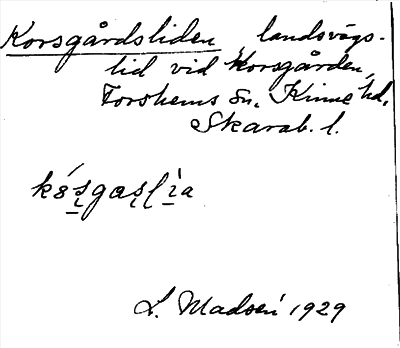 Korsgårdsliden, landsvägs-
lid vid Korsgården,
Forshems sn, Kinne hd,
Skarab. l.
L. Madsén 1929